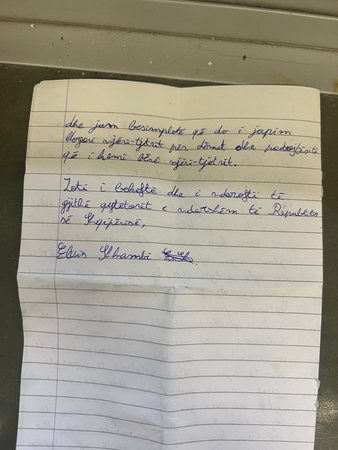 dhe jam besimplotë që do i japim
llogari njëri-tjetrit për dëmet dhe padrejtësitë
që i kemi bërë njëri-tjetrit.
Zoti i bekoftë dhe i ndaroftë të
gjithë qytetarët e ndershëm të Republikës
së Shqipërisë,
Elvis Shambi